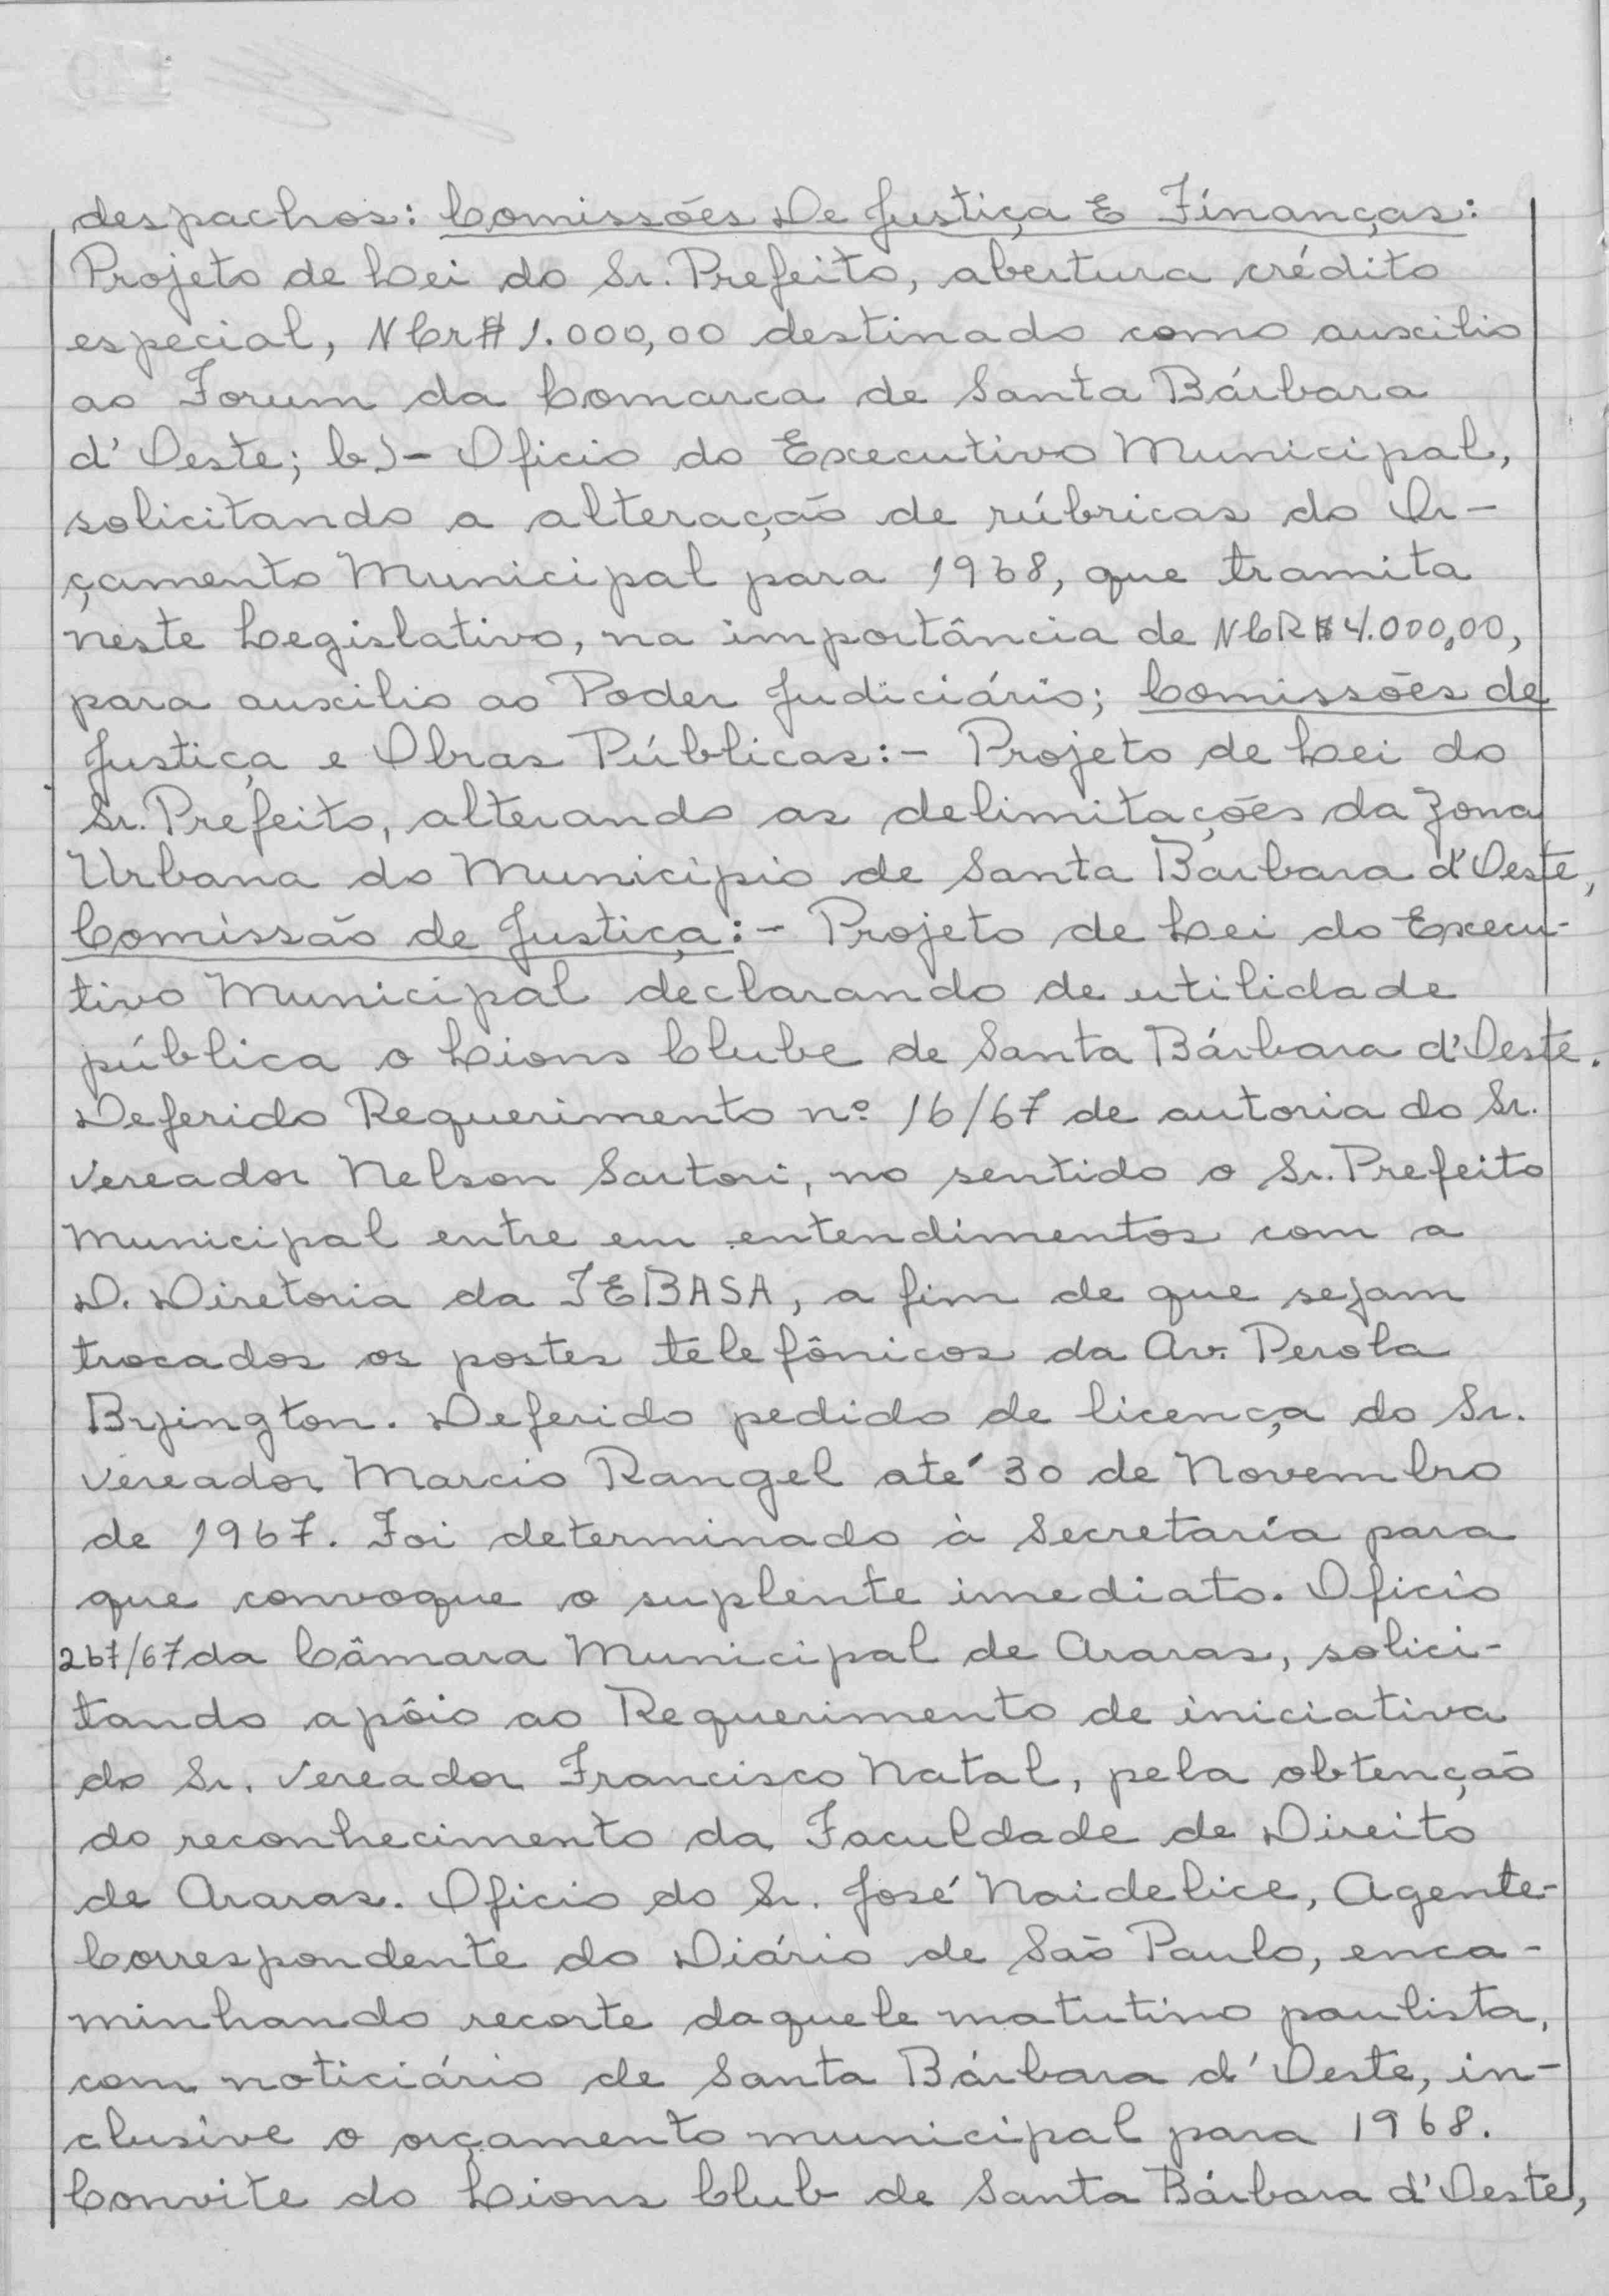 despachos: Comissões De Justiça E Finanças:
Projeto de Lei do Sr. Prefeito, abertura crédito
especial, NCr$ 1.000,00 destinado como auxilio
ao Forum da Comarca de Santa Bárbara
d'Oeste; b)- Oficio do Executivo Municipal,
solicitando a alteração de rúbricas do Or-
çamento Municipal para 1968, que tramita
neste Legislativo, na importância de NCR$ 4.000,00,
para auxilio ao Poder Judiciário; Comissões de
Justiça e Obras Públicas:- Projeto de Lei do
Sr. Prefeito, alterando as delimitações da Zona
Urbana do Municipio de Santa Bárbara d'Oeste,
Comissão de Justiça:- Projeto de Lei do Execu-
tivo Municipal declarando de utilidade
pública o Lions Clube de Santa Bárbara d'Oeste.
Deferido Requerimento nº 16/67 de autoria do Sr.
Vereador Nelson Sartori, no sentido o Sr. Prefeito
Municipal entre em entendimentos com a
D. Diretoria da TEBASA, a fim de que sejam
trocados os postes telefônicos da Av. Perola
Byington. Deferido pedido de licença do Sr.
Vereador Marcio Rangel até 30 de Novembro
de 1967. Foi determinado à Secretaría para
que convoque o suplente imediato. Oficio
267/67 da Câmara Municipal de Araras, solici-
tando apôio ao Requerimento de iniciativa
do Sr. Vereador Francisco Natal, pela obtenção
do reconhecimento da Faculdade de Direito
de Araras. Oficio do Sr. José Naidelice, Agente-
Correspondente do Diário de São Paulo, enca-
minhando recorte daquele matutino paulista,
com noticiário de Santa Bárbara d'Oeste, in-
clusive o orçamento municipal para 1968.
Convite do Lions Club de Santa Bárbara d'Oeste,